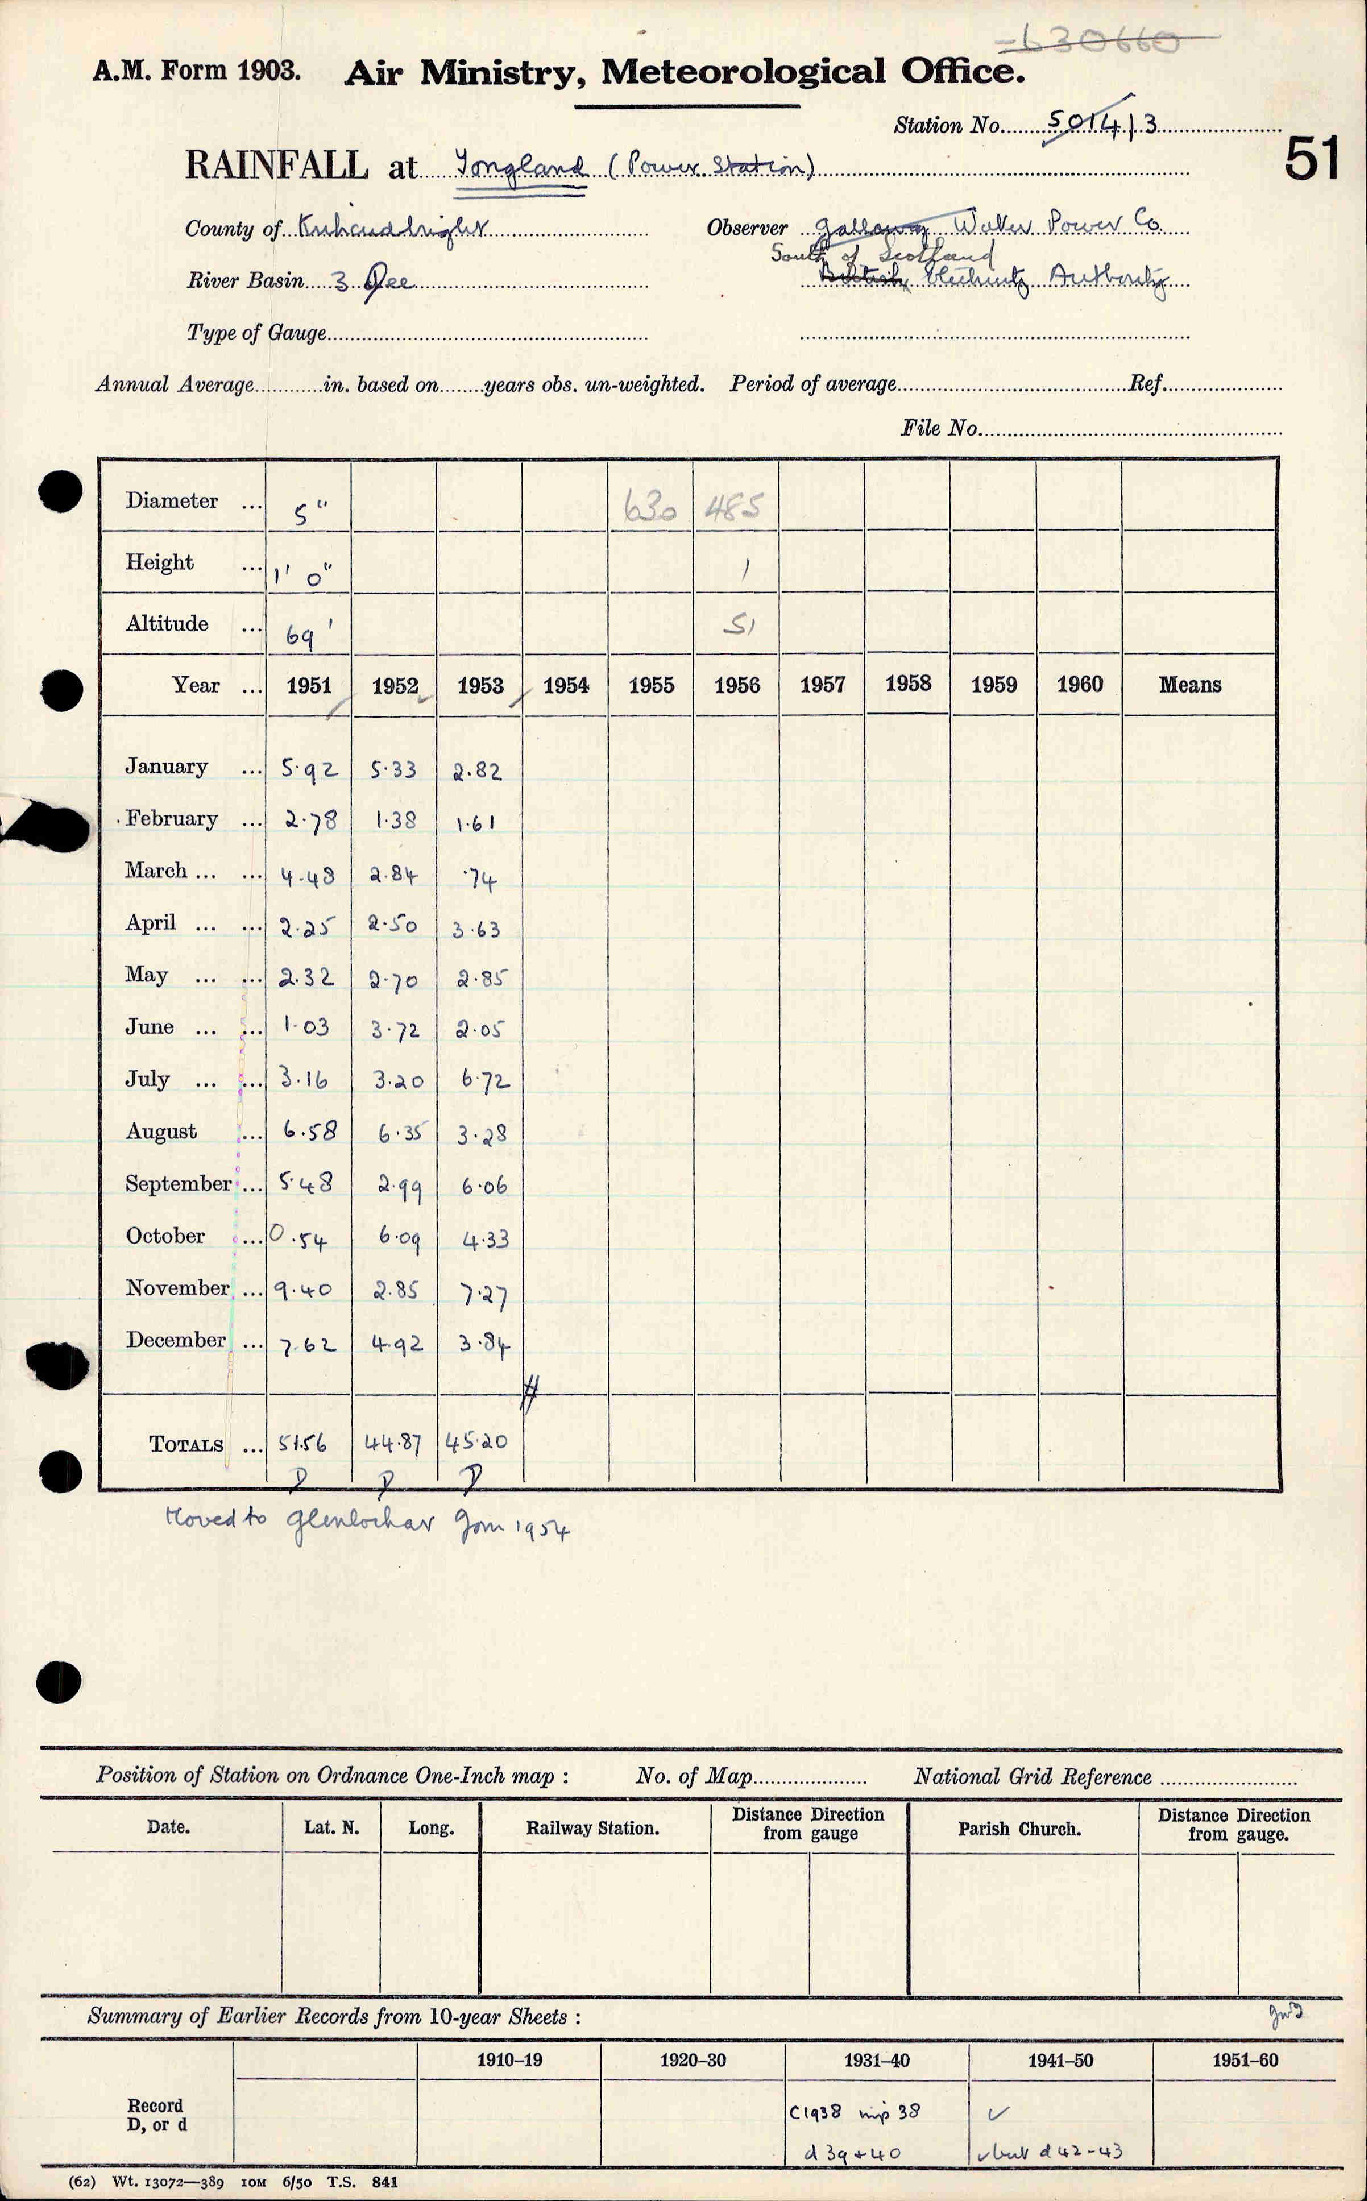 630660
A.M. Form 1903. Air Ministry, Meteorological Office.
Station No. 5014/3
51
RAINFALL at Tongland (Power Station)
County of Kirkcudbright Observer Galloway Water Power Co
South of Scotland
River Basin 3 Dee British Electricity Authority
Type of Gauge
Annual Average in. based on years obs. un-weighted. Period of average Ref.
File No.
Diameter ... 5" 630 485
Height ... 1' 0" 1
Altitude ... 69' 51
Year ... 1951 1952 1953 1954 1955 1956 1957 1958 1959 1960 Means
January ... 5.92 5.33 2.82
February ... 2.78 1.38 1.61
March ... ... 4.48 2.84 .74
April ... ... 2.25 2.50 3.63
May ... ... 2.32 2.70 2.85
June ... ... 1.03 3.72 2.05
July ... ... 3.16 3.20 6.72
August ... 6.58 6.35 3.28
September ... 5.48 2.99 6.06
October ... 0.54 6.09 4.33
November ... 9.40 2.85 7.27
December ... 7.62 4.92 3.84
#
TOTALS ... 51.56 44.87 45.20
D D D
Moved to Glenlochar Jan 1954
Position of Station on Ordnance One-Inch map : No. of Map National Grid Reference
Date. Lat. N. Long. Railway Station. Distance Direction from gauge Parish Church. Distance Direction from gauge.
Summary of Earlier Records from 10-year Sheets :
1910–19 1920–30 1931–40 1941–50 1951–60
Record C1938 mp 38 ✓
D, or d d 39+40 ✓ but d 42-43
(62) Wt. 13072—389 10M 6/50 T.S. 841